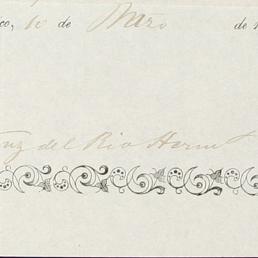 co, 10 de Marzo de
del Rio Herm